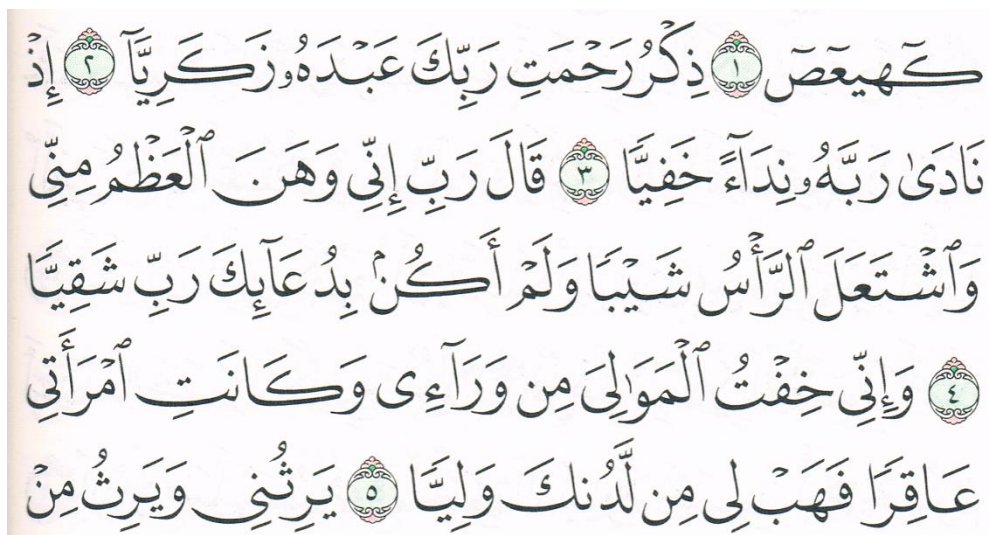 كٓهيعٓصٓ ١ ذِكْرُ رَحْمَتِ رَبِّكَ عَبْدَهُۥ زَكَرِيَّآ ٢ إِذْ
نَادَىٰ رَبَّهُۥ نِدَآءً خَفِيًّا ٣ قَالَ رَبِّ إِنِّى وَهَنَ ٱلْعَظْمُ مِنِّى
وَٱشْتَعَلَ ٱلرَّأْسُ شَيْبًا وَلَمْ أَكُنۢ بِدُعَآئِكَ رَبِّ شَقِيًّا
٤ وَإِنِّى خِفْتُ ٱلْمَوَٰلِىَ مِن وَرَآءِى وَكَانَتِ ٱمْرَأَتِى
عَاقِرًا فَهَبْ لِى مِن لَّدُنكَ وَلِيًّا ٥ يَرِثُنِى وَيَرِثُ مِنْ